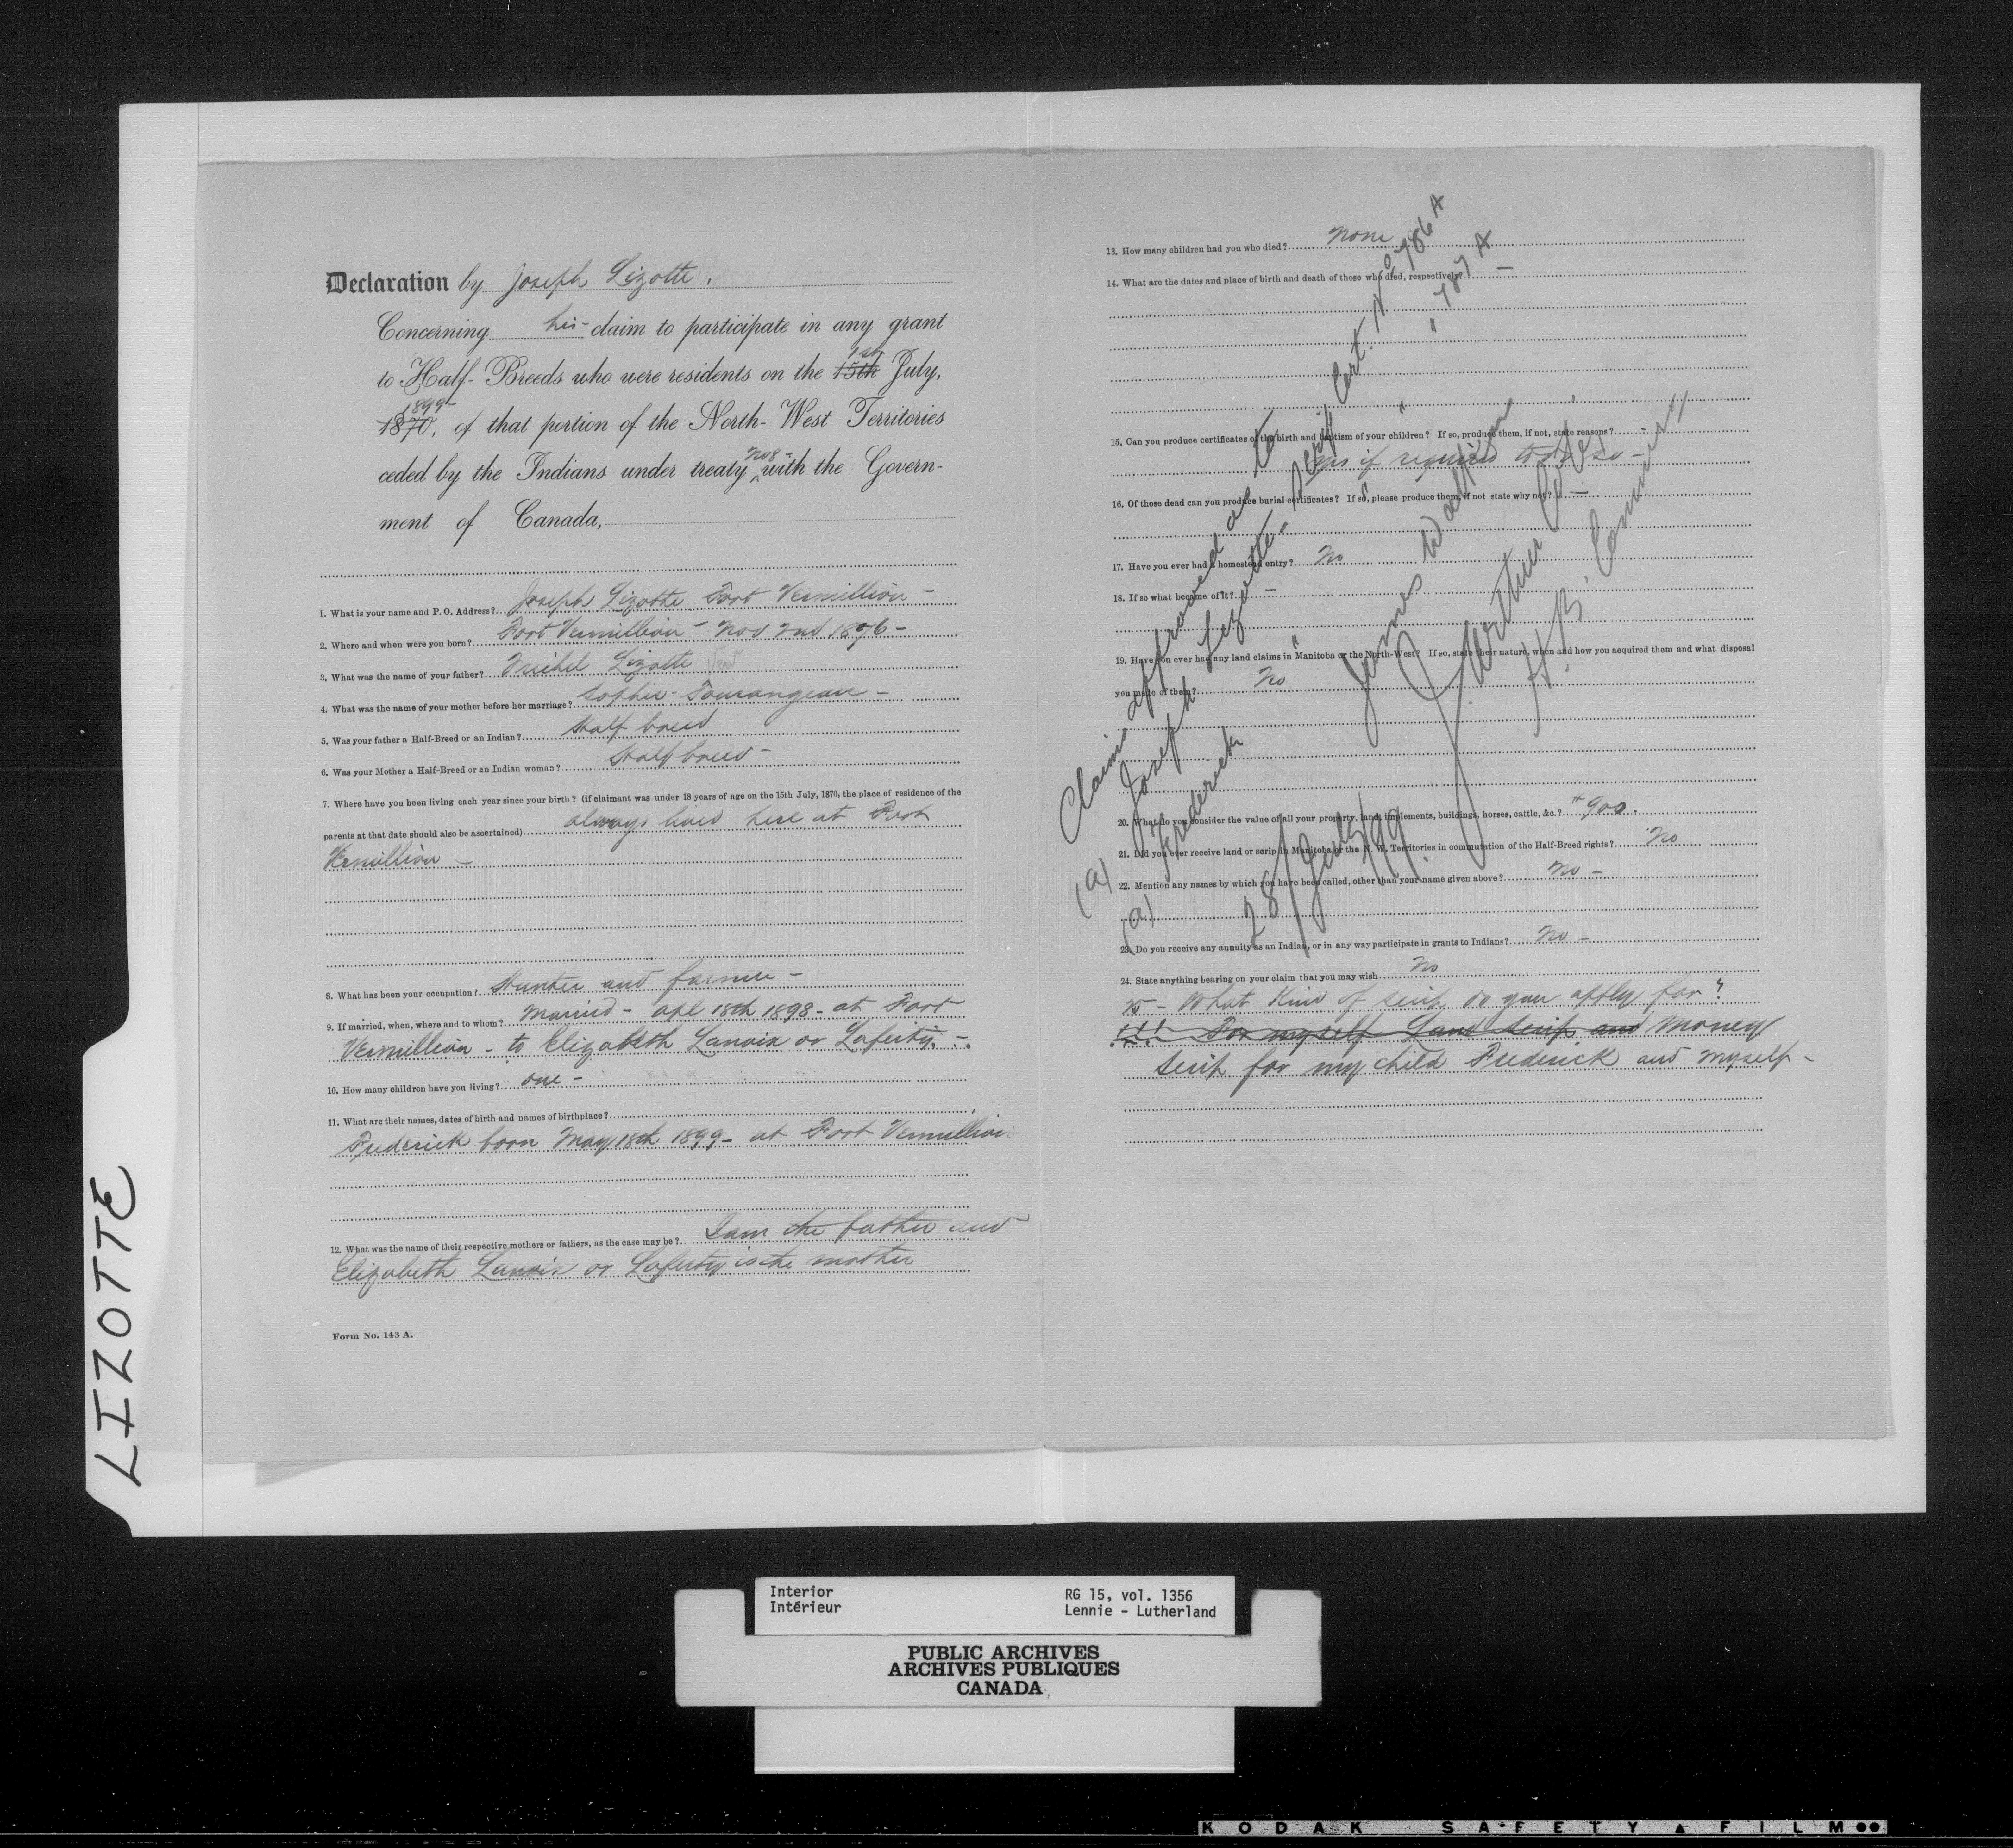 LIZOTTE
Declaration by Joseph Lizotte.
Concerning his claim to participate in any grant
to Half-Breeds who were residents on the 15th 1st July,
1870, 1899 of that portion of the North-West Territories
ceded by the Indians under treaty No 8 with the Govern-
ment of Canada,
1. What is your name and P. O. Address? Joseph Lizotte Fort Vermillion -
2. Where and when were you born? Fort Vermillion - Nov 2nd 1876 -
3. What was the name of your father? Michel Lizotte
4. What was the name of your mother before her marriage? Sophie Tourangeau -
5. Was your father a Half-Breed or an Indian? Half breed
6. Was your Mother a Half-Breed or an Indian woman? Half breed -
7. Where have you been living each year since your birth? (if claimant was under 18 years of age on the 15th July, 1870, the place of residence of the
parents at that date should also be ascertained) always lived here at Fort
Vermillion -
8. What has been your occupation? Hunter and farmer -
9. If married, when, where and to whom? Married - apl 18th 1898 - at Fort
Vermillion - to Elizabeth Lanoix or Laferty. -
10. How many children have you living? one -
11. What are their names, dates of birth and names of birthplace?
Frederick born May 18th 1899 - at Fort Vermillion
12. What was the name of their respective mothers or fathers, as the case may be? I am the father and
Elizabeth Lanoix or Laferty is the mother
Form No. 143 A.
13. How many children had you who died? None
14. What are the dates and place of birth and death of those who died, respectively? -
15. Can you produce certificates of the birth and baptism of your children? If so, produce them, if not, state reasons?
Yes if required to do so -
16. Of those dead can you produce burial certificates? If so, please produce them, if not state why not? -
17. Have you ever had a homestead entry? No
18. If so what became of it? -
19. Have you ever had any land claims in Manitoba or the North-West? If so, state their nature, when and how you acquired them and what disposal
you made of them? No
20. What do you consider the value of all your property, land, implements, buildings, horses, cattle, &c.? $900.
21. Did you ever receive land or scrip in Manitoba or the N. W. Territories in commutation of the Half-Breed rights? No
22. Mention any names by which you have been called, other than your name given above? No -
23. Do you receive any annuity as an Indian, or in any way participate in grants to Indians? No -
24. State anything bearing on your claim that you may wish No
25 - What kind of scrip do you apply for?
For myself Land Scrip and Money
scrip for my child Frederick and myself -
Claim approved as to
(a) Joseph Lizotte - Scrip Cert. No 786 A
(a) Frederick " " " " 787 A
28/July/99
James Walker
J. Arthur Coté
H. B. Commrs
Interior
Intérieur
RG 15, vol. 1356
Lennie - Lutherland
PUBLIC ARCHIVES
ARCHIVES PUBLIQUES
CANADA
KODAK SAFETY FILM